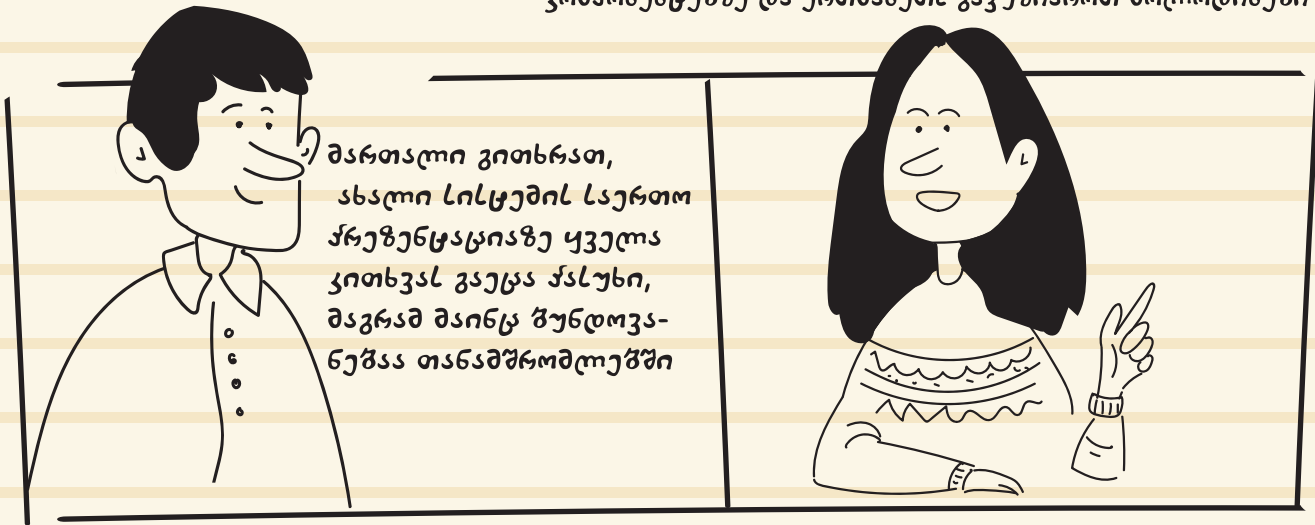 მართალი გითხრათ,
ახალი სისტემის საერთო
პრეზენტაციაზე ყველა
კითხვას გაეცა პასუხი,
მაგრამ მაინც ბუნდოვა-
ნებაა თანამშრომლებში